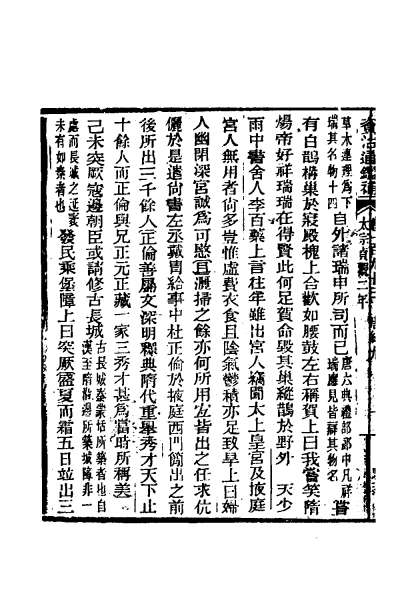 資治通鑑補 太宗貞觀二年
草木連理爲下瑞其名物十四自外諸瑞申所司而已唐六典禮部郎中凡祥瑞應見皆辨其物名嘗
有白鵲構巢於寢殿槐上合歡如腰鼓左右稱賀上曰我嘗笑隋
煬帝好祥瑞瑞在得賢此何足賀命毀其巢縱鵲於野外 天少
雨中書舍人李百藥上言往年雖出宮人竊聞太上皇宮及掖庭
宮人無用者尚多豈惟虛費衣食且陰氣鬱積亦足致旱上曰婦
人幽閉深宮誠爲可愍且灑掃之餘亦何所用宜皆出之任求伉
儷於是遣尚書左丞戴胄給事中杜正倫於掖庭西門簡出之前
後所出三千餘人正倫善屬文深明釋典隋代重舉秀才天下止
十餘人而正倫與兄正元正藏一家三秀才甚爲當時所稱美
己未突厥寇邊朝臣或請修古長城古長城秦蒙恬所築者也自漢至隋緣邊所築城障非一
處而長城之延袤未有如秦者也發民乘堡障上曰突厥盛夏而霜五日並出三